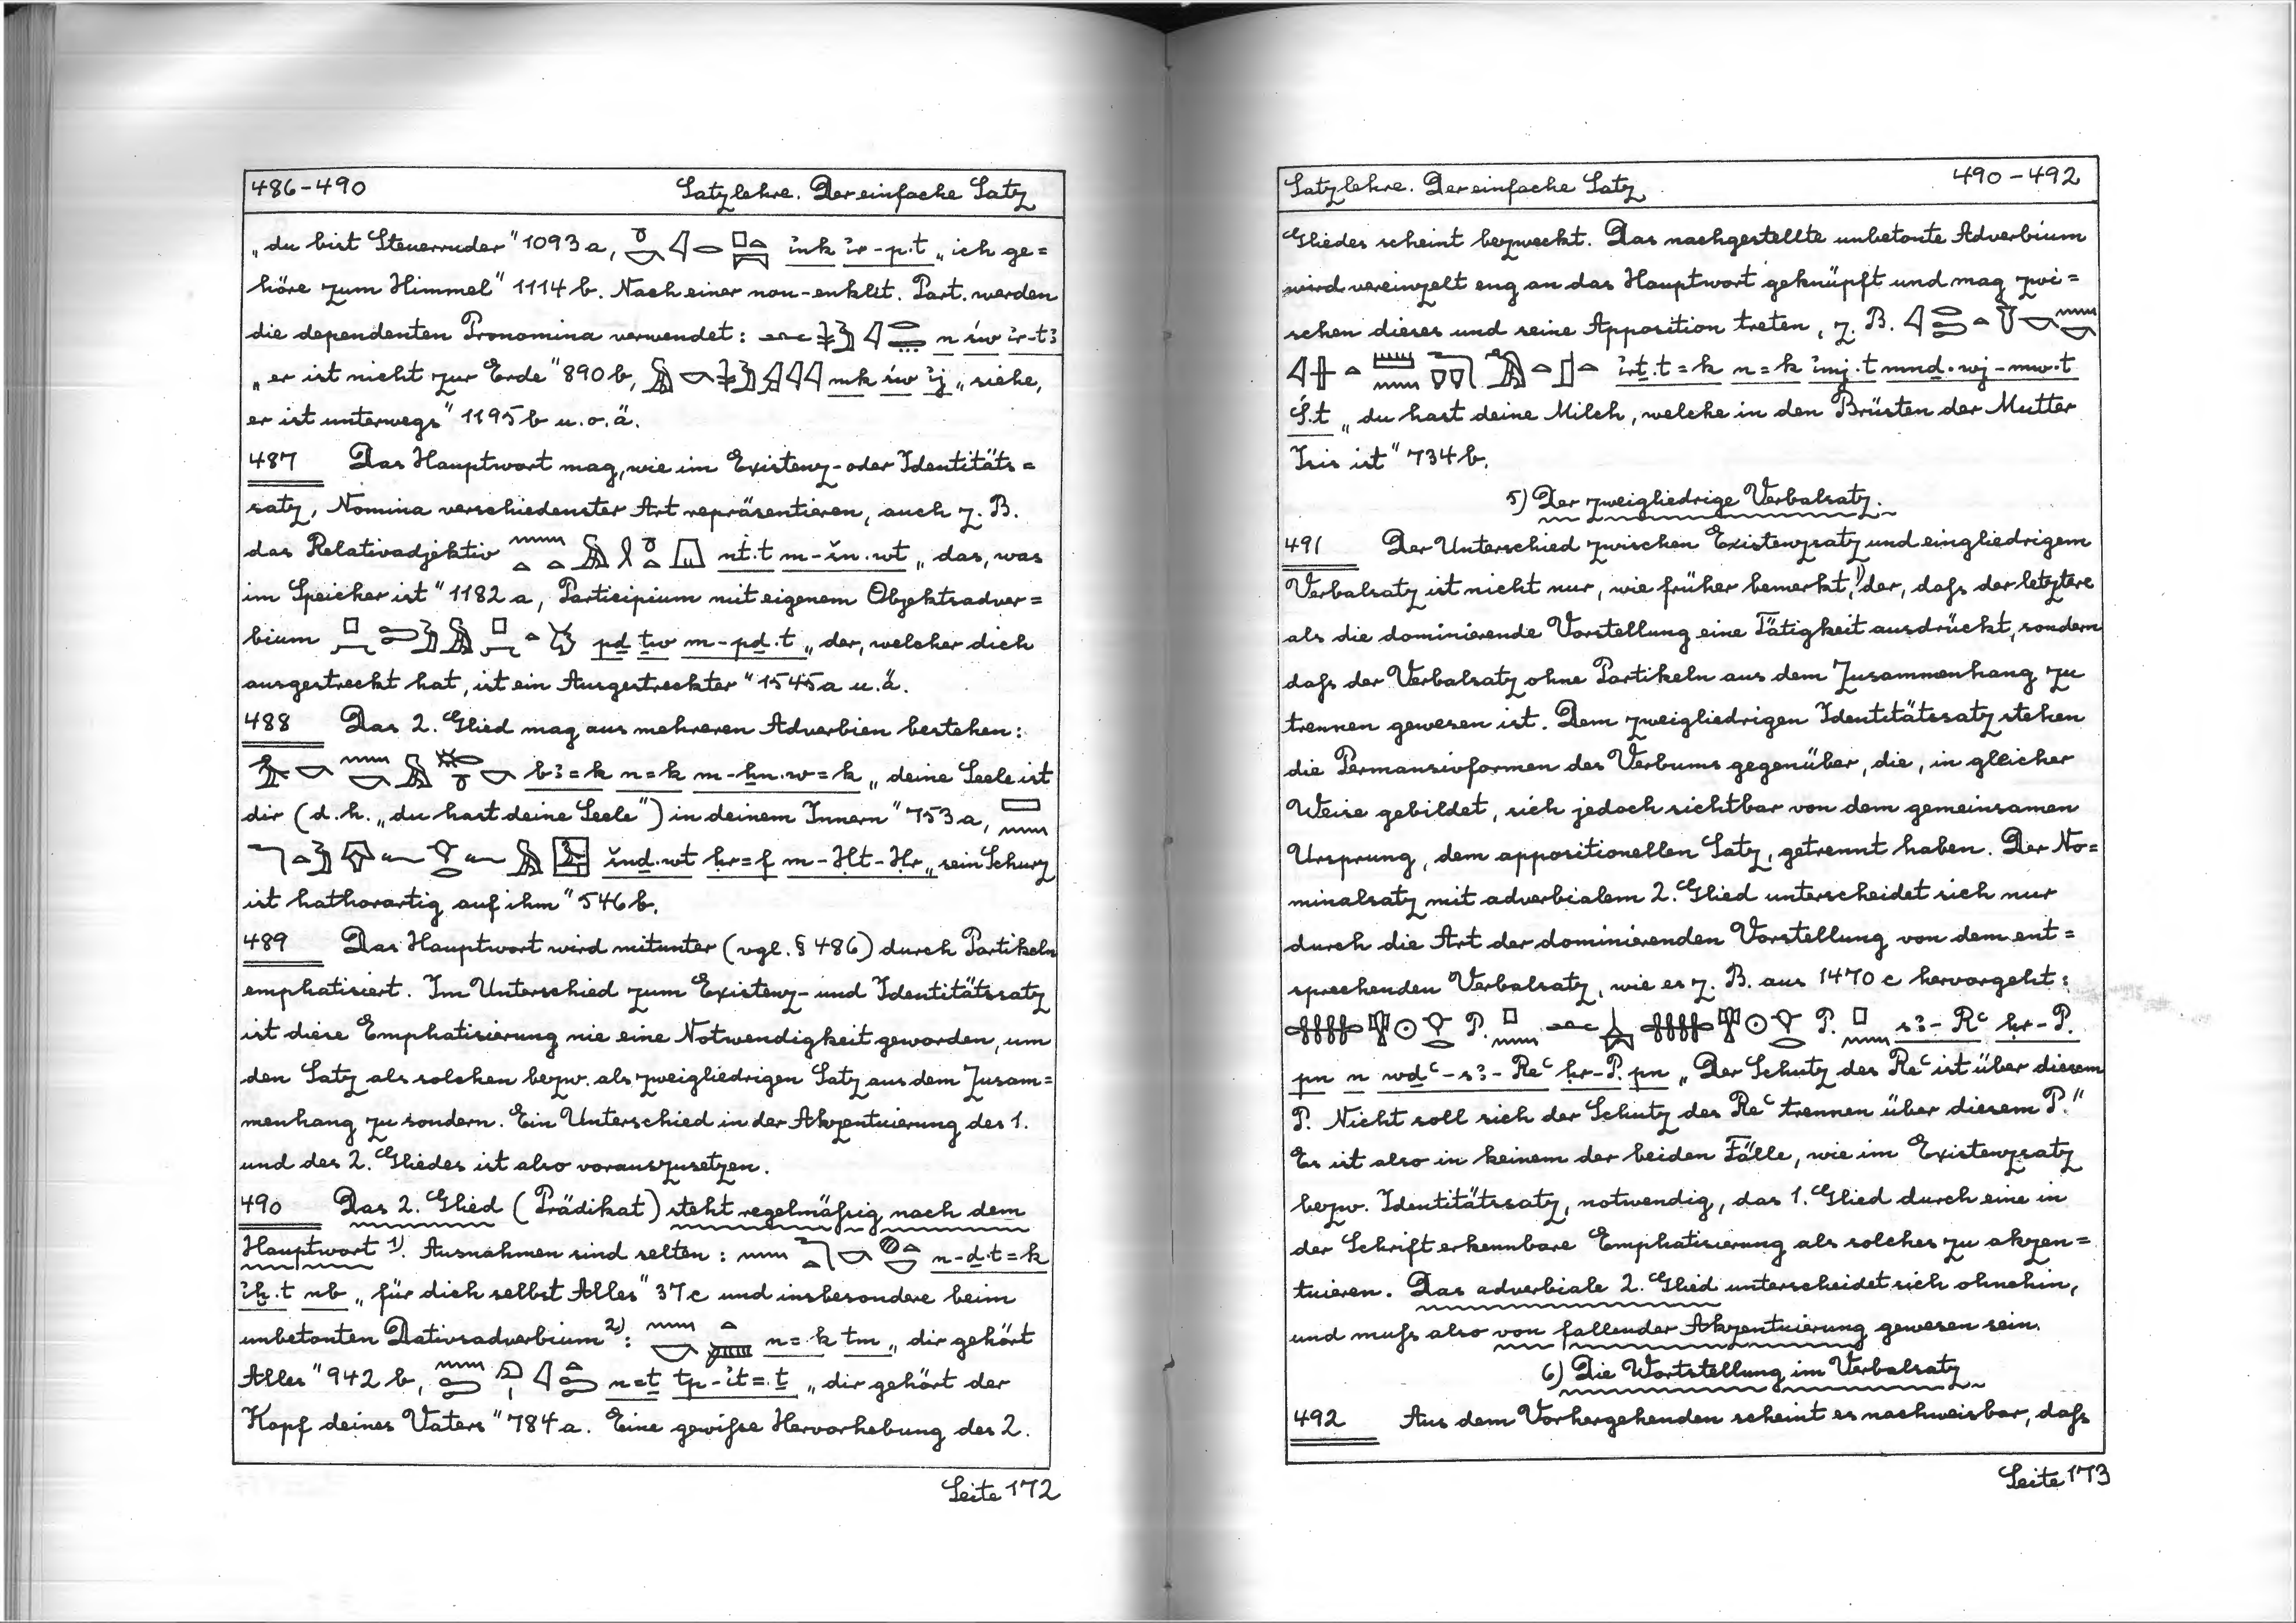 486-490 Satzlehre. Der einfache Satz
„du bist Steuerruder" 1093a, ỉnk ỉr-p.t „ich ge=
höre zum Himmel" 1114b. Nach einer non-enklit. Part. werden
die dependenten Pronomina verwendet: n św ỉr-tꜣ
„er ist nicht zur Erde" 890b, mk św ỉj „siehe,
er ist unterwegs" 1195b u.o.ä.
487 Das Hauptwort mag, wie im Existenz- oder Identitäts=
satz, Nomina verschiedenster Art repräsentieren, auch z. B.
das Relativadjektiv nt.t m-šn.wt „das, was
im Speicher ist" 1182a, Participium mit eigenem Objektsadver=
bium pḏ ṯw m-pḏ.t „der, welcher dich
ausgestreckt hat, ist ein Ausgestreckter" 1545a u.ä.
488 Das 2. Glied mag aus mehreren Adverbien bestehen:
bꜣ=k n=k m-ẖn.w=k „deine Seele ist
dir (d.h. „du hast deine Seele") in deinem Innern" 753a,
šnḏ.wt ḥr=f m-Ḥt-Ḥr „sein Schurz
ist hathorartig auf ihm" 546b.
489 Das Hauptwort wird mitunter (vgl. § 486) durch Partikeln
emphatisiert. Im Unterschied zum Existenz- und Identitätssatz
ist diese Emphatisierung nie eine Notwendigkeit geworden, um
den Satz als solchen bezw. als zweigliedrigen Satz aus dem Zusam=
menhang zu sondern. Ein Unterschied in der Akzentuierung des 1.
und des 2. Gliedes ist also vorauszusetzen.
490 Das 2. Glied (Prädikat) steht regelmäßig nach dem
Hauptwort 1). Ausnahmen sind selten: n-ḏ.t=k
ỉḫ.t nb „für dich selbst Alles" 37c und insbesondere beim
unbetonten Dativsadverbium 2): n=k tm „dir gehört
Alles" 942b, n=ṯ tp-ỉt=ṯ „dir gehört der
Kopf deines Vaters" 784a. Eine gewiße Hervorhebung des 2.
Seite 172
Satzlehre. Der einfache Satz 490-492
Gliedes scheint bezweckt. Das nachgestellte unbetonte Adverbium
wird vereinzelt eng an das Hauptwort geknüpft und mag zwi=
schen dieses und seine Apposition treten, z. B.
ỉrṯ.t=k n=k ỉmj.t mnḏ.wj-mw.t
Ś.t „du hast deine Milch, welche in den Brüsten der Mutter
Isis ist" 734b.
5) Der zweigliedrige Verbalsatz.
491 Der Unterschied zwischen Existenzsatz und eingliedrigem
Verbalsatz ist nicht nur, wie früher bemerkt, 1) der, daß der letztere
als die dominierende Vorstellung eine Tätigkeit ausdrückt, sondern
daß der Verbalsatz ohne Partikeln aus dem Zusammenhang zu
trennen gewesen ist. Dem zweigliedrigen Identitätssatz stehen
die Permansivformen des Verbums gegenüber, die, in gleicher
Weise gebildet, sich jedoch sichtbar von dem gemeinsamen
Ursprung, dem appositionellen Satz, getrennt haben. Der No=
minalsatz mit adverbialem 2. Glied unterscheidet sich nur
durch die Art der dominierenden Vorstellung von dem ent=
sprechenden Verbalsatz, wie es z. B. aus 1470c hervorgeht:
P. P. sꜣ-Rc ḥr-P.
pn n wḏc-sꜣ-Rec ḥr-P. pn „Der Schutz des Rec ist über diesem
P. Nicht soll sich der Schutz des Rec trennen über diesem P."
Es ist also in keinem der beiden Fälle, wie im Existenzsatz
bezw. Identitätssatz, notwendig, das 1. Glied durch eine in
der Schrift erkennbare Emphatisierung als solches zu akzen=
tuieren. Das adverbiale 2. Glied unterscheidet sich ohnehin,
und muß also von fallender Akzentuierung gewesen sein.
6) Die Wortstellung im Verbalsatz
492 Aus dem Vorhergehenden scheint es nachweisbar, daß
Seite 173